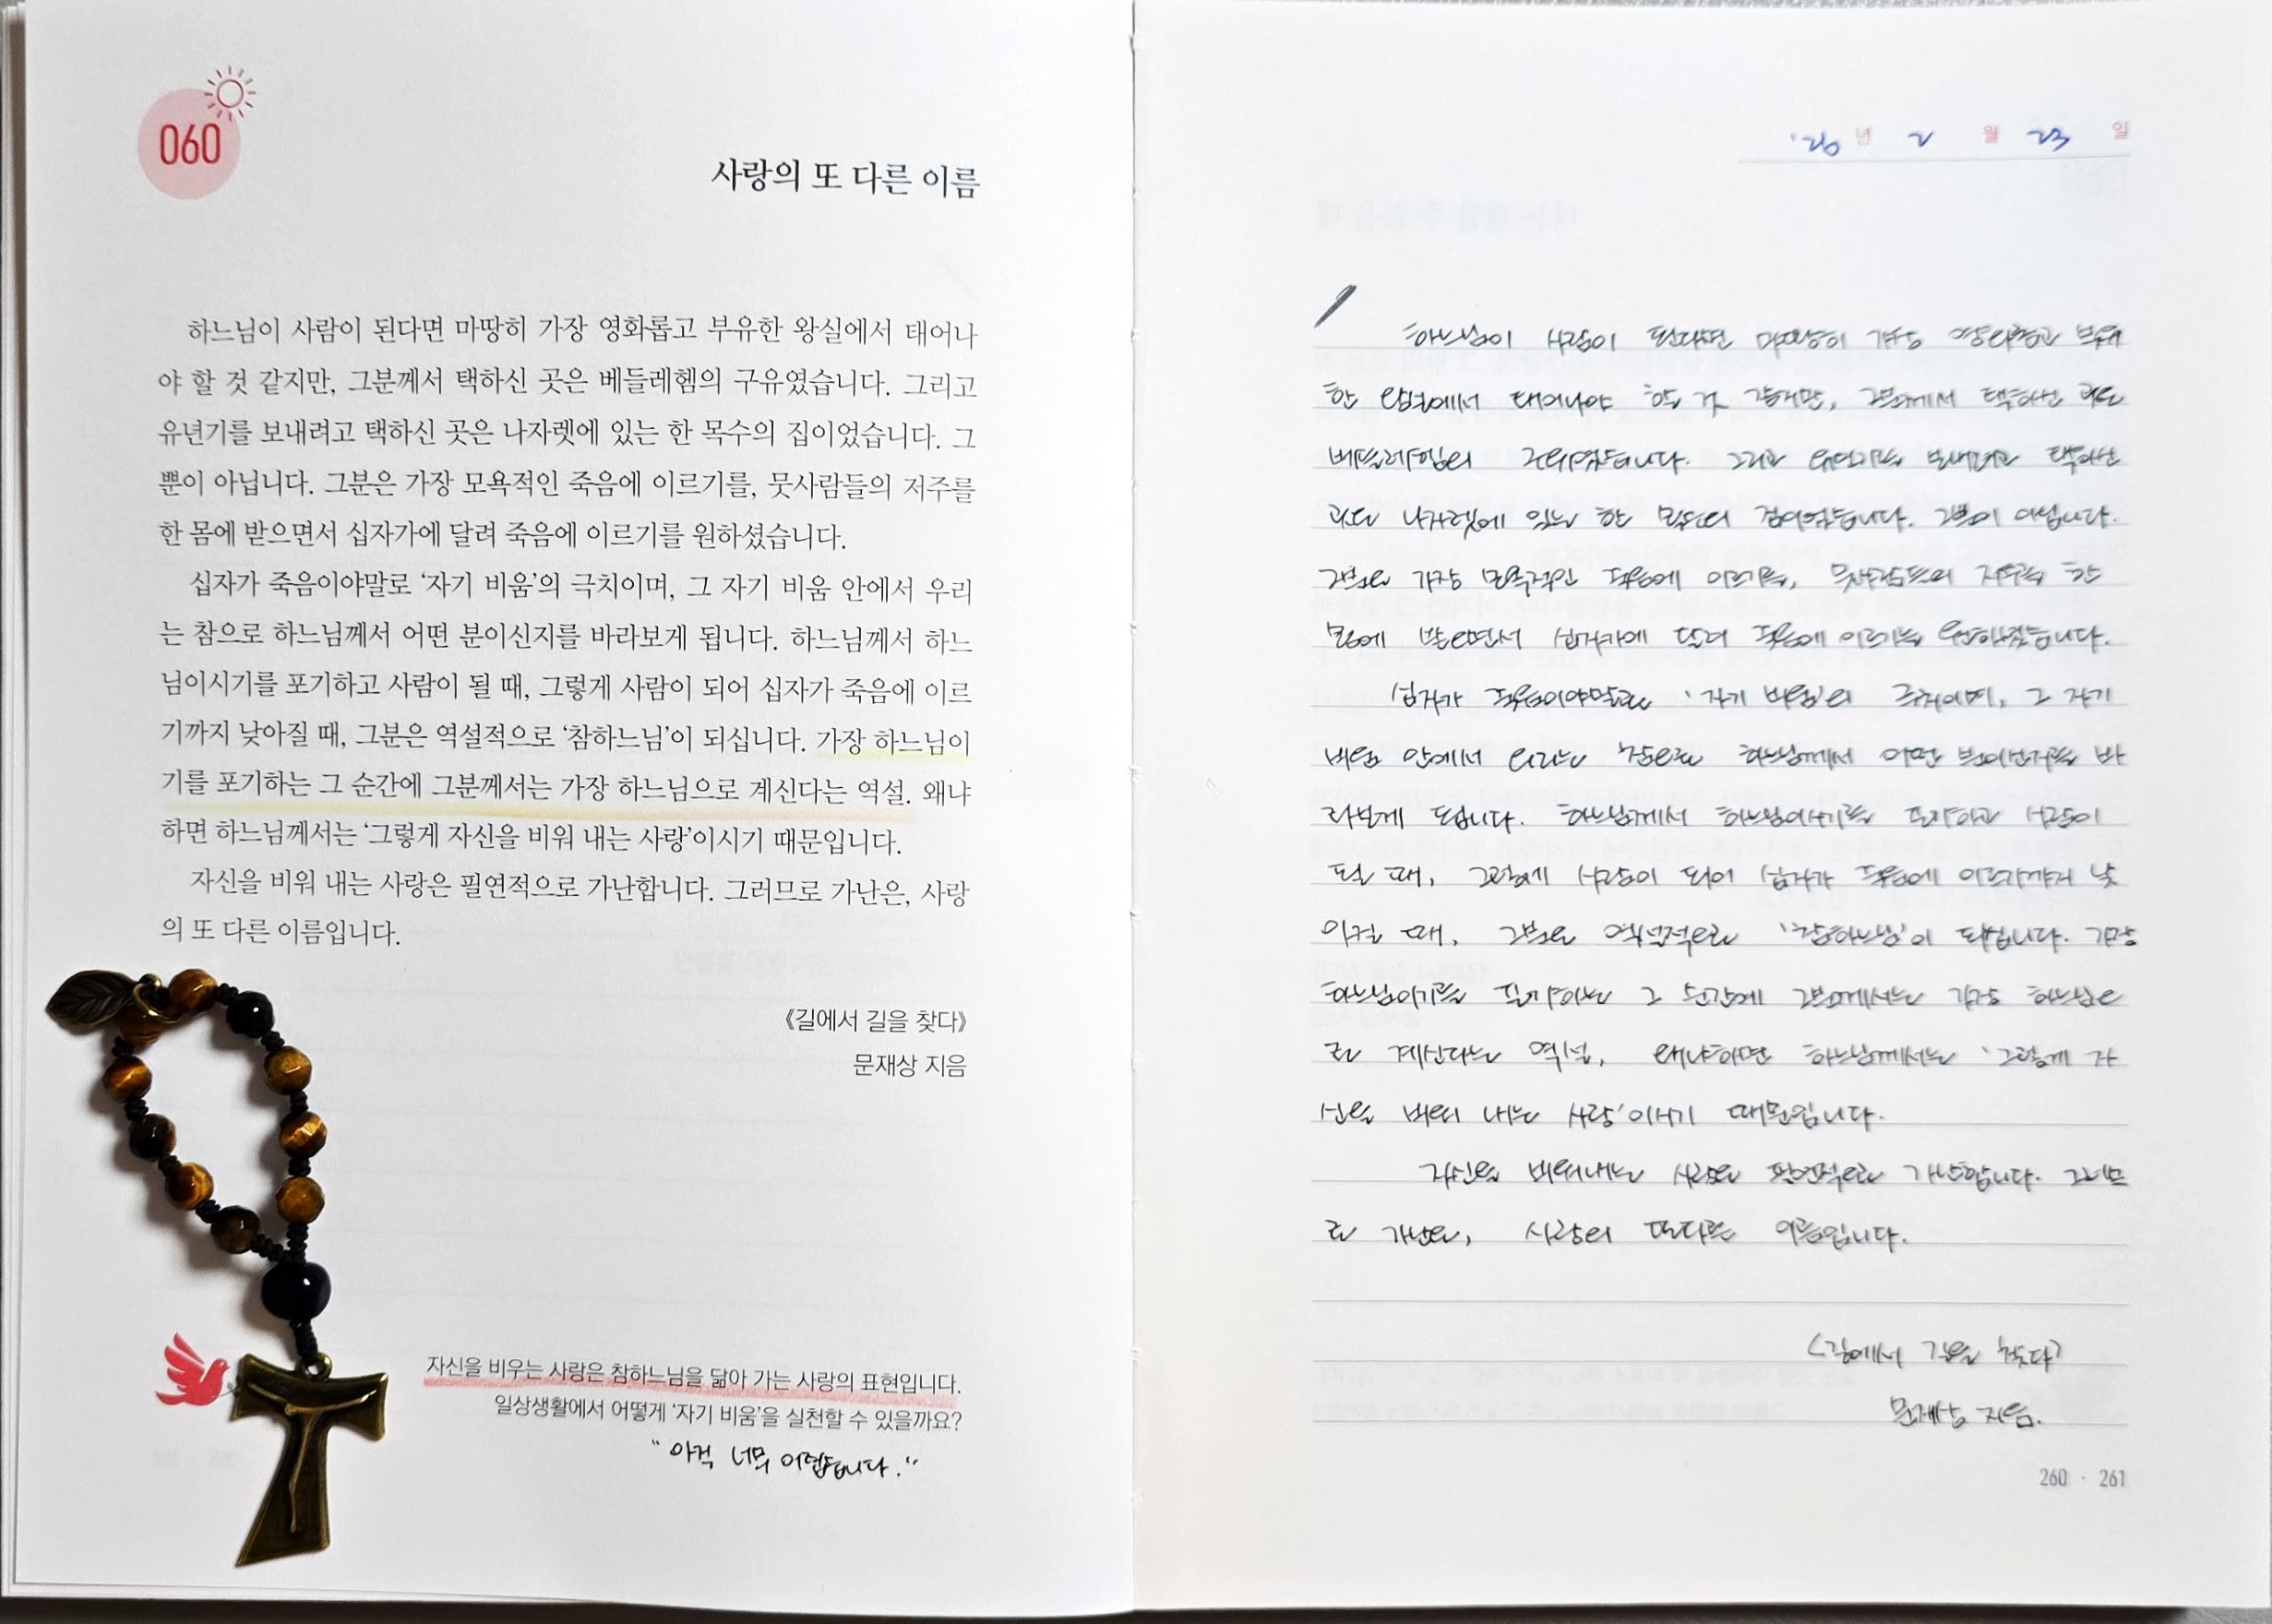 060
사랑의 또 다른 이름
하느님이 사람이 된다면 마땅히 가장 영화롭고 부유한 왕실에서 태어나
야 할 것 같지만, 그분께서 택하신 곳은 베들레헴의 구유였습니다. 그리고
유년기를 보내려고 택하신 곳은 나자렛에 있는 한 목수의 집이었습니다. 그
뿐이 아닙니다. 그분은 가장 모욕적인 죽음에 이르기를, 뭇사람들의 저주를
한 몸에 받으면서 십자가에 달려 죽음에 이르기를 원하셨습니다.
십자가 죽음이야말로 ‘자기 비움’의 극치이며, 그 자기 비움 안에서 우리
는 참으로 하느님께서 어떤 분이신지를 바라보게 됩니다. 하느님께서 하느
님이시기를 포기하고 사람이 될 때, 그렇게 사람이 되어 십자가 죽음에 이르
기까지 낮아질 때, 그분은 역설적으로 ‘참하느님’이 되십니다. 가장 하느님이
기를 포기하는 그 순간에 그분께서는 가장 하느님으로 계신다는 역설. 왜냐
하면 하느님께서는 ‘그렇게 자신을 비워 내는 사랑’이시기 때문입니다.
자신을 비워 내는 사랑은 필연적으로 가난합니다. 그러므로 가난은, 사랑
의 또 다른 이름입니다.
《길에서 길을 찾다》
문재상 지음
자신을 비우는 사랑은 참하느님을 닮아 가는 사랑의 표현입니다.
일상생활에서 어떻게 ‘자기 비움’을 실천할 수 있을까요?
"아직 너무 어렵습니다."
'26년 2월 23일
하느님이 사람이 된다면 마땅히 가장 영화롭고 부유
한 왕실에서 태어나야 할 것 같지만, 그분께서 택하신 곳은
베들레헴의 구유였습니다. 그리고 유년기를 보내려고 택하신
곳은 나자렛에 있는 한 목수의 집이었습니다. 그뿐이 아닙니다.
그분은 가장 모욕적인 죽음에 이르기를, 뭇사람들의 저주를 한
몸에 받으면서 십자가에 달려 죽음에 이르기를 원하셨습니다.
십자가 죽음이야말로 '자기 비움'의 극치이며, 그 자기
비움 안에서 우리는 참으로 하느님께서 어떤 분이신지를 바
라보게 됩니다. 하느님께서 하느님이시기를 포기하고 사람이
될 때, 그렇게 사람이 되어 십자가 죽음에 이르기까지 낮
아질 때, 그분은 역설적으로 '참하느님'이 되십니다. 가장
하느님이기를 포기하는 그 순간에 그분께서는 가장 하느님으
로 계신다는 역설, 왜냐하면 하느님께서는 '그렇게 자
신을 비워 내는 사랑'이시기 때문입니다.
자신을 비워내는 사랑은 필연적으로 가난합니다. 그러므
로 가난은, 사랑의 또다른 이름입니다.
<길에서 길을 찾다>
문재상 지음.
260 · 261